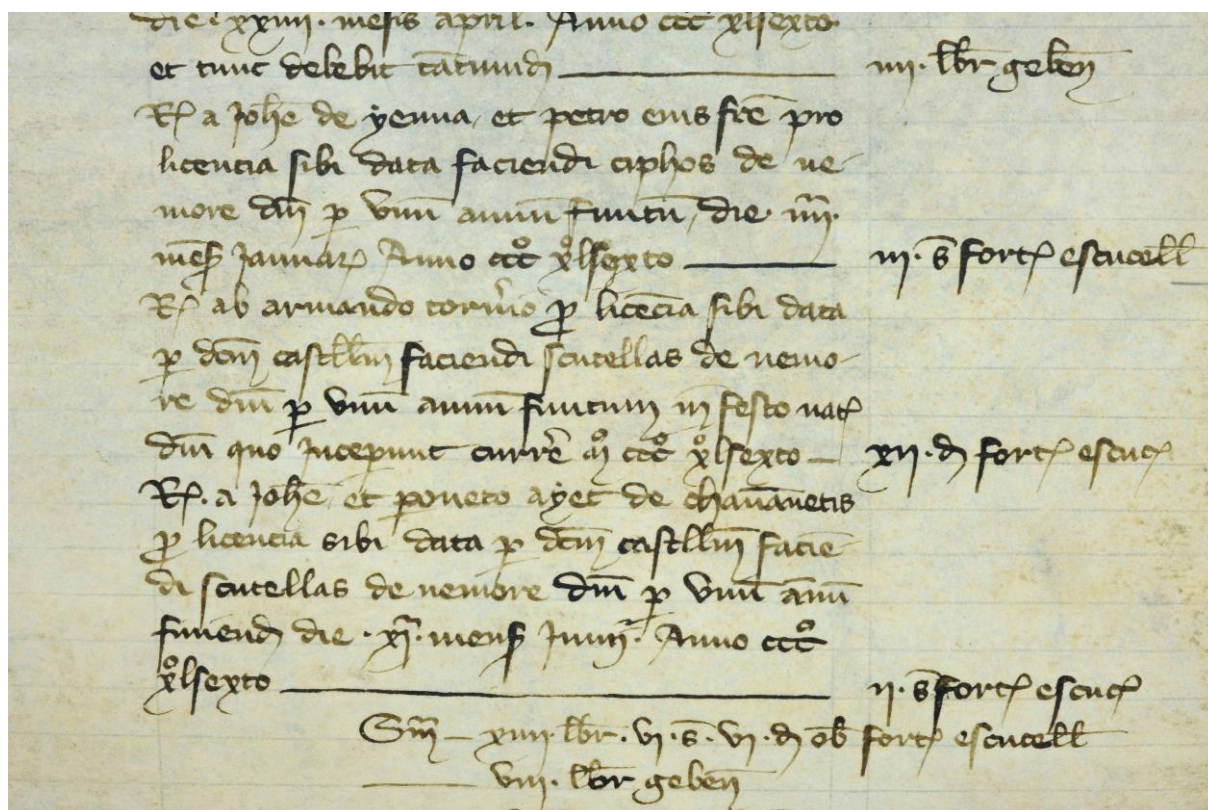 die · xxiiii · mēsis april. Anno ccc xlsexto
et tunc debebit tātumdꝫ iiii · lbr gebeñ
Rꝫ a Joħe de yenna et petro eius frē pro
licencia sibi data faciendi ciphos de ne-
more dnī ꝑ vnū annū finitū die iiii ·
mēs Januarꝝ Anno ccc° xl°sexto iii · s̄ fortꝭ escucell
Rꝫ ab armando tornio ꝓ licēcia sibi data
ꝑ dcm̄ castllm̄ faciendi scutellas de nemo-
re dnī ꝑ vnū annū finitum in festo natꝭ
dnī quo Inceperunt currē m° ccc° xl°sexto xii · d fortꝭ escucꝭ
Rꝫ · a Joħe et poneto ayet de chauānetis
ꝓ licencia sibi data ꝑ dcm̄ castllm̄ faciē-
di scutellas de nemore dnī ꝑ vnū ānū
finiendꝫ die · xi · mens Junii · Anno ccc°
xl°sexto ii · s̄ fortꝭ escucꝭ
Sm̄ – xiiii · lbr · vi · s̄ · vi · d ob fortꝭ escucell
viii · lbr gebeñ